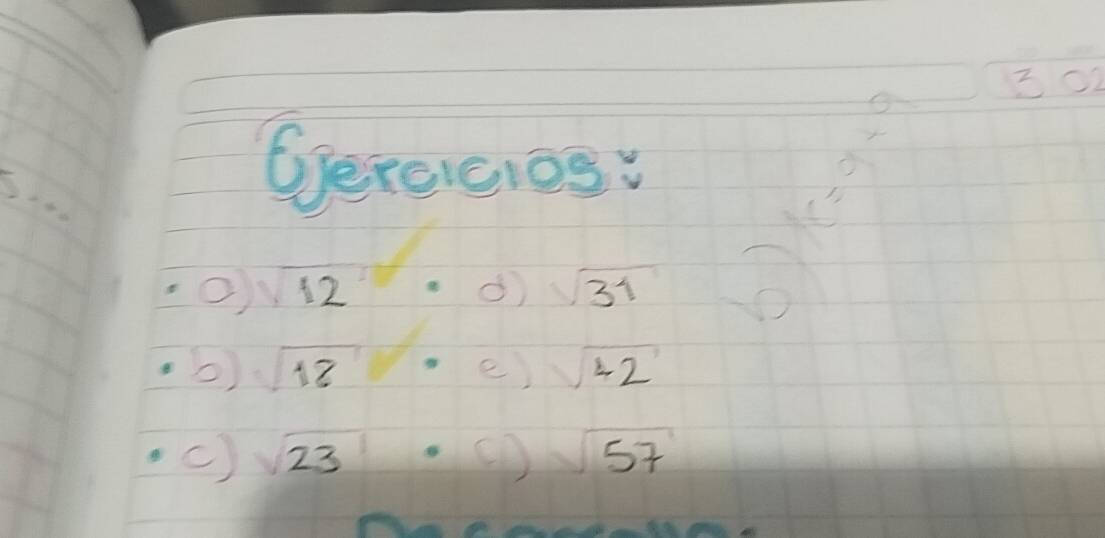 13 02
Ejercicios:
• a) √12 • d) √31
• b) √18 • e) √42
• c) √23 • c) √57